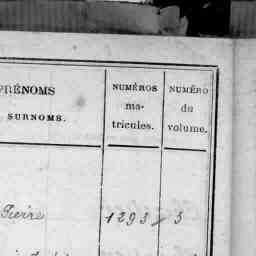 PRÉNOMS
SURNOMS.
NUMÉROS
ma-
tricules.
NUMÉRO
du
volume.
Pierre 1293 / 3